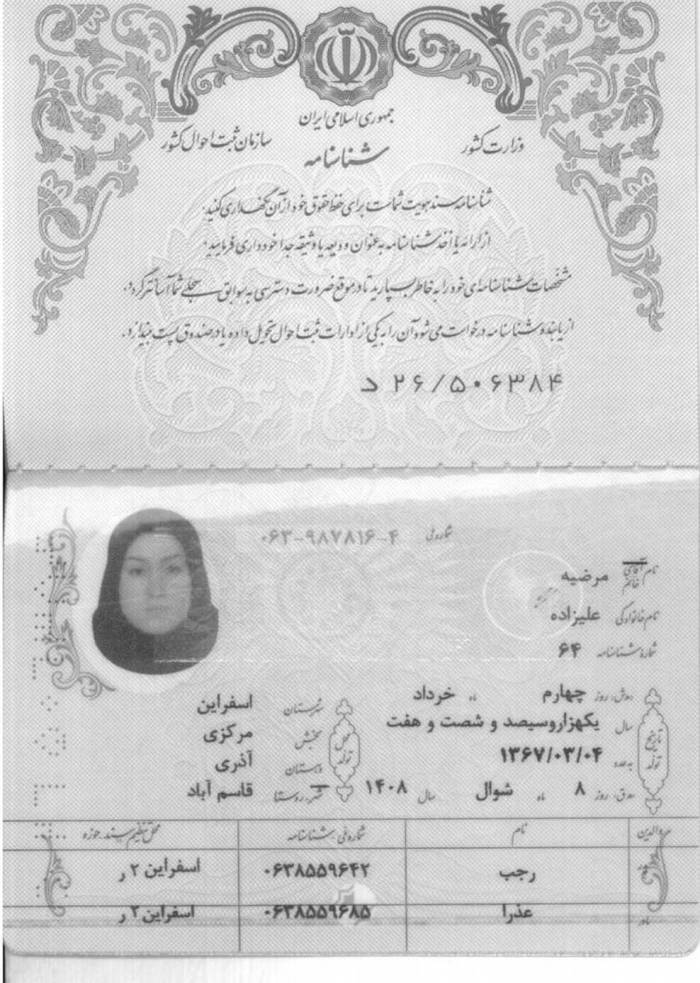 جمهوری اسلامی ایران
وزارت کشور
سازمان ثبت احوال کشور
شناسنامه
شناسنامه سند هویت شماست برای حفظ حقوق خود از آن نگهداری کنید.
از ارائه یا اخذ شناسنامه به عنوان ودیعه یا وثیقه جدا خودداری فرمایید.
مشخصات شناسنامه‌ای خود را به خاطر بسپارید تا در موقع ضرورت دسترسی به سوابق سجلی شما آسانتر گردد.
از یابنده شناسنامه درخواست می‌شود آن را به یکی از ادارات ثبت احوال تحویل داده یا در صندوق پست بیندازد.
د ۲۶/۵۰۶۳۸۴
شماره ملی ۰۶۳-۹۸۷۸۱۶-۴
نام آقای خانم مرضیه
نام خانوادگی علیزاده
شماره شناسنامه ۶۴
تاریخ تولد
روز چهارم ماه خرداد
سال یکهزاروسیصد و شصت و هفت
به عدد ۱۳۶۷/۰۳/۰۴
روز ۸ ماه شوال سال ۱۴۰۸
محل تولد
شهرستان اسفراین
بخش مرکزی
دهستان آذری
شهر روستا قاسم آباد
والدین نام شماره ملی شناسنامه محل تنظیم سند حوزه
پدر رجب ۰۶۳۸۵۵۹۶۴۲ اسفراین ۲ ر
مادر عذرا ۰۶۳۸۵۵۹۶۸۵ اسفراین ۲ ر